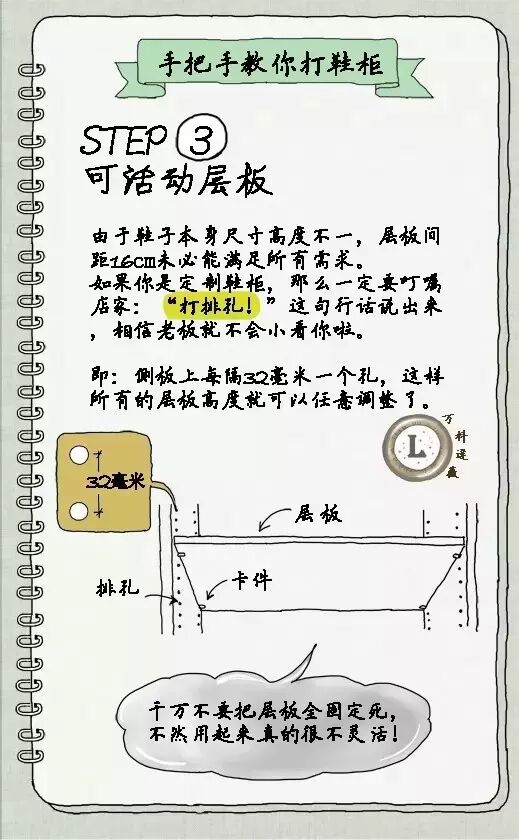 手把手教你打鞋柜
STEP ③
可活动层板
由于鞋子本身尺寸高度不一，层板间
距16cm未必能满足所有需求。
如果你是定制鞋柜，那么一定要叮嘱
店家：“打排孔！”这句行话说出来
，相信老板就不会小看你啦。
即：侧板上每隔32毫米一个孔，这样
所有的层板高度就可以任意调整了。
L
万料迷藏
32毫米
层板
排孔
卡件
千万不要把层板全固定死，
不然用起来真的很不灵活！